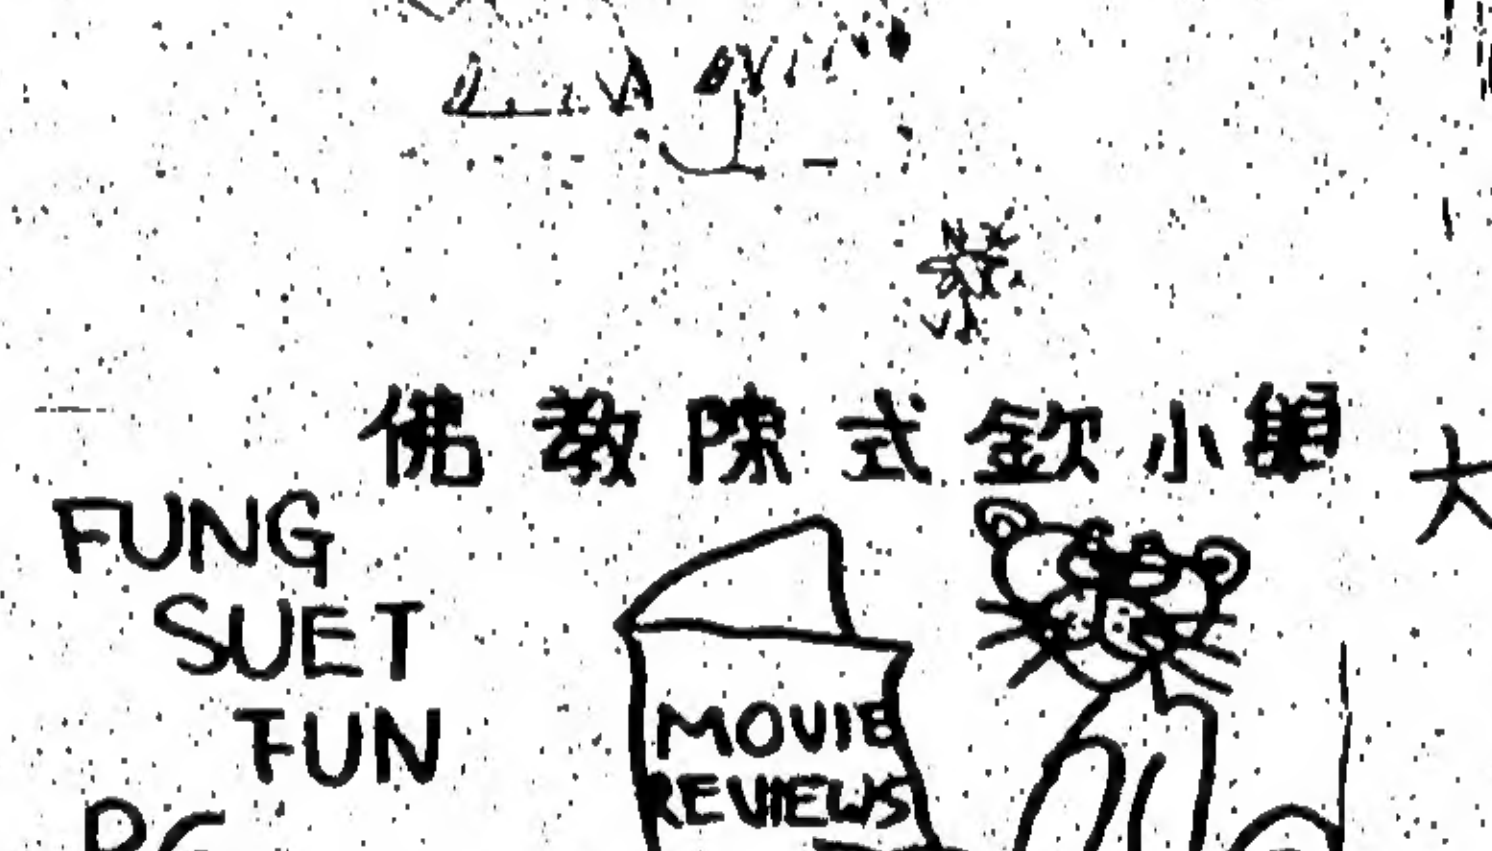 佛教陳式欽小學
大
FUNG
SUET
FUN
MOVIE
REVIEWS